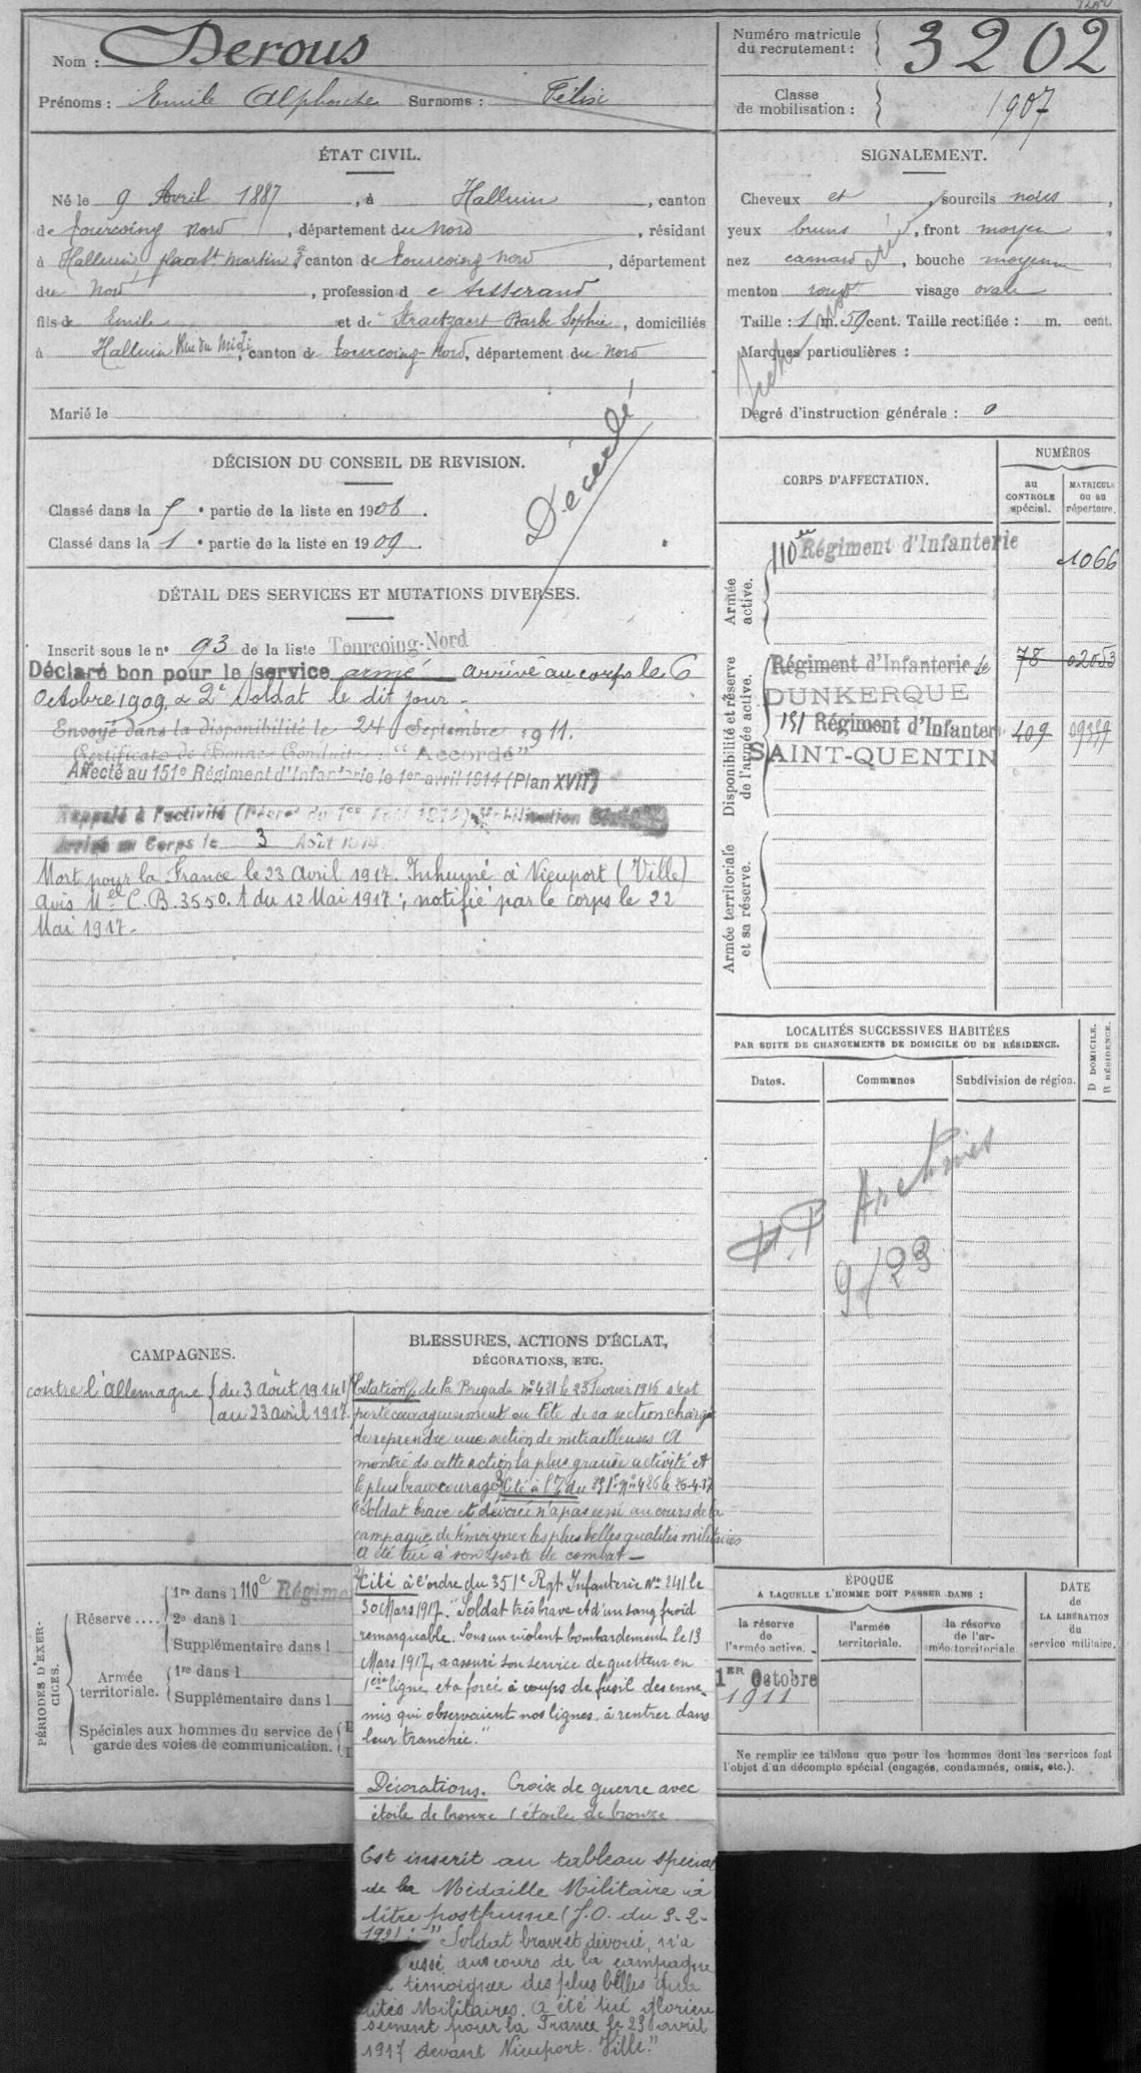 Nom : Derous
Prénoms : Emile Alphonse Surnoms : Félix
Numéro matricule du recrutement : 3202
Classe de mobilisation : 1907
ÉTAT CIVIL.
Né le 9 Avril 1887, à Halluin, canton
de Tourcoing Nord, département du Nord, résidant
à Halluin place St Martin 2 canton de Tourcoing Nord, département
du Nord, profession de tisserand
fils de Emile et de Straetzaert Barbe Sophie, domiciliés
à Halluin Rue du Midi, canton de Tourcoing-Nord, département du Nord
Marié le
SIGNALEMENT.
Cheveux et , sourcils noirs,
yeux bruns, front moyen,
nez camard, bouche moyenne
menton rond visage ovale
Taille : 1 m. 59 cent. Taille rectifiée : m. cent.
Marques particulières :
Degré d'instruction générale : 0
DÉCISION DU CONSEIL DE REVISION.
Classé dans la 5e partie de la liste en 1908.
Classé dans la 1e partie de la liste en 1909.
Décédé
DÉTAIL DES SERVICES ET MUTATIONS DIVERSES.
Inscrit sous le n° 93 de la liste Tourcoing-Nord
Déclaré bon pour le service armé arrivé au corps le 6
octobre 1909, & 2e soldat le dit jour.
Envoyé dans la disponibilité le 24 Septembre 1911.
Certificate de Bonne Conduite : "Accordé"
Affecté au 151e Régiment d'Infanterie le 1er avril 1914 (Plan XVII)
Rappelé à l'activité (Décret du 1er Août 1914) Mobilisation
Arrivé au Corps le 3 Août 1914
Mort pour la France le 23 Avril 1917. Inhumé à Nieuport (Ville)
avis Mel C.B. 3550. t du 12 Mai 1917 ; notifié par le corps le 22
Mai 1917.
CORPS D'AFFECTATION.
NUMÉROS
au CONTROLE spécial.
MATRICULE ou au répertoire.
Armée active.
110e Régiment d'Infanterie
1066
Disponibilité et réserve de l'armée active.
Régiment d'Infanterie de 78 02053
DUNKERQUE
151 Régiment d'Infanterie 409
SAINT-QUENTIN
Armée territoriale et sa réserve.
LOCALITÉS SUCCESSIVES HABITÉES
PAR SUITE DE CHANGEMENTS DE DOMICILE OU DE RÉSIDENCE.
Dates.
Communes
Subdivision de région.
D DOMICILE.
R RÉSIDENCE.
Archives
9/23
CAMPAGNES.
contre l'Allemagne { du 3 août 1914
au 23 avril 1917.
BLESSURES, ACTIONS D'ÉCLAT,
DÉCORATIONS, ETC.
Citation de la Brigade n° 431 le 23 février 1916 s'est
porté courageusement en tête de sa section chargée
de reprendre une section de mitrailleuses a
montré ds cette action la plus grande activité et
le plus beau courage. Cité à l'O. du 351e n° 426 le 26-4-17
"Soldat brave et dévoué n'a pas cessé au cours de la
campagne de témoigner les plus belles qualités militaires
a été tué à son poste de combat —
Cité à l'ordre du 351e Rgt Infanterie N° 241 le
30 Mars 1917. "Soldat très brave et d'un sang froid
remarquable. Sous un violent bombardement le 13
Mars 1917, a assuré son service de guetteur en
1ère ligne et a forcé à coups de fusil des enne-
mis qui observaient nos lignes à rentrer dans
leur tranchée."
Décorations. Croix de guerre avec
étoile de bronze 1 étoile de bronze
Est inscrit au tableau spécial
de la Médaille Militaire à
titre posthume (J.O. du 9-2-
1921 : "Soldat brave et dévoué, n'a
cessé au cours de la campagne
témoigner des plus belles qua
lités Militaires. A été tué glorieu
sement pour la France le 23 avril
1917 devant Nieuport-Ville."
PÉRIODES D'EXERCICES.
Réserve....
1re dans l 110e Régime
2e dans l
Supplémentaire dans l
Armée territoriale.
1re dans l
Supplémentaire dans l
Spéciales aux hommes du service de
garde des voies de communication.
ÉPOQUE
A LAQUELLE L'HOMME DOIT PASSER DANS :
la réserve de l'armée active.
l'armée territoriale.
la réserve de l'armée territoriale
DATE de LA LIBÉRATION du service militaire.
1ER Octobre
1911
Ne remplir ce tableau que pour les hommes dont les services font
l'objet d'un décompte spécial (engagés, condamnés, omis, etc.).